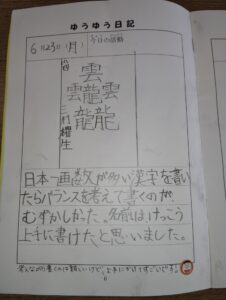 ゆうゆう日記
6月23日(月)
今日の活動
雲
雲龍雲
龍龍
日本一画数が多い漢字を書い
たらバランスを考えて書くのが
むずかしかった。名前はけっこう
上手に書けたと思いました。
6